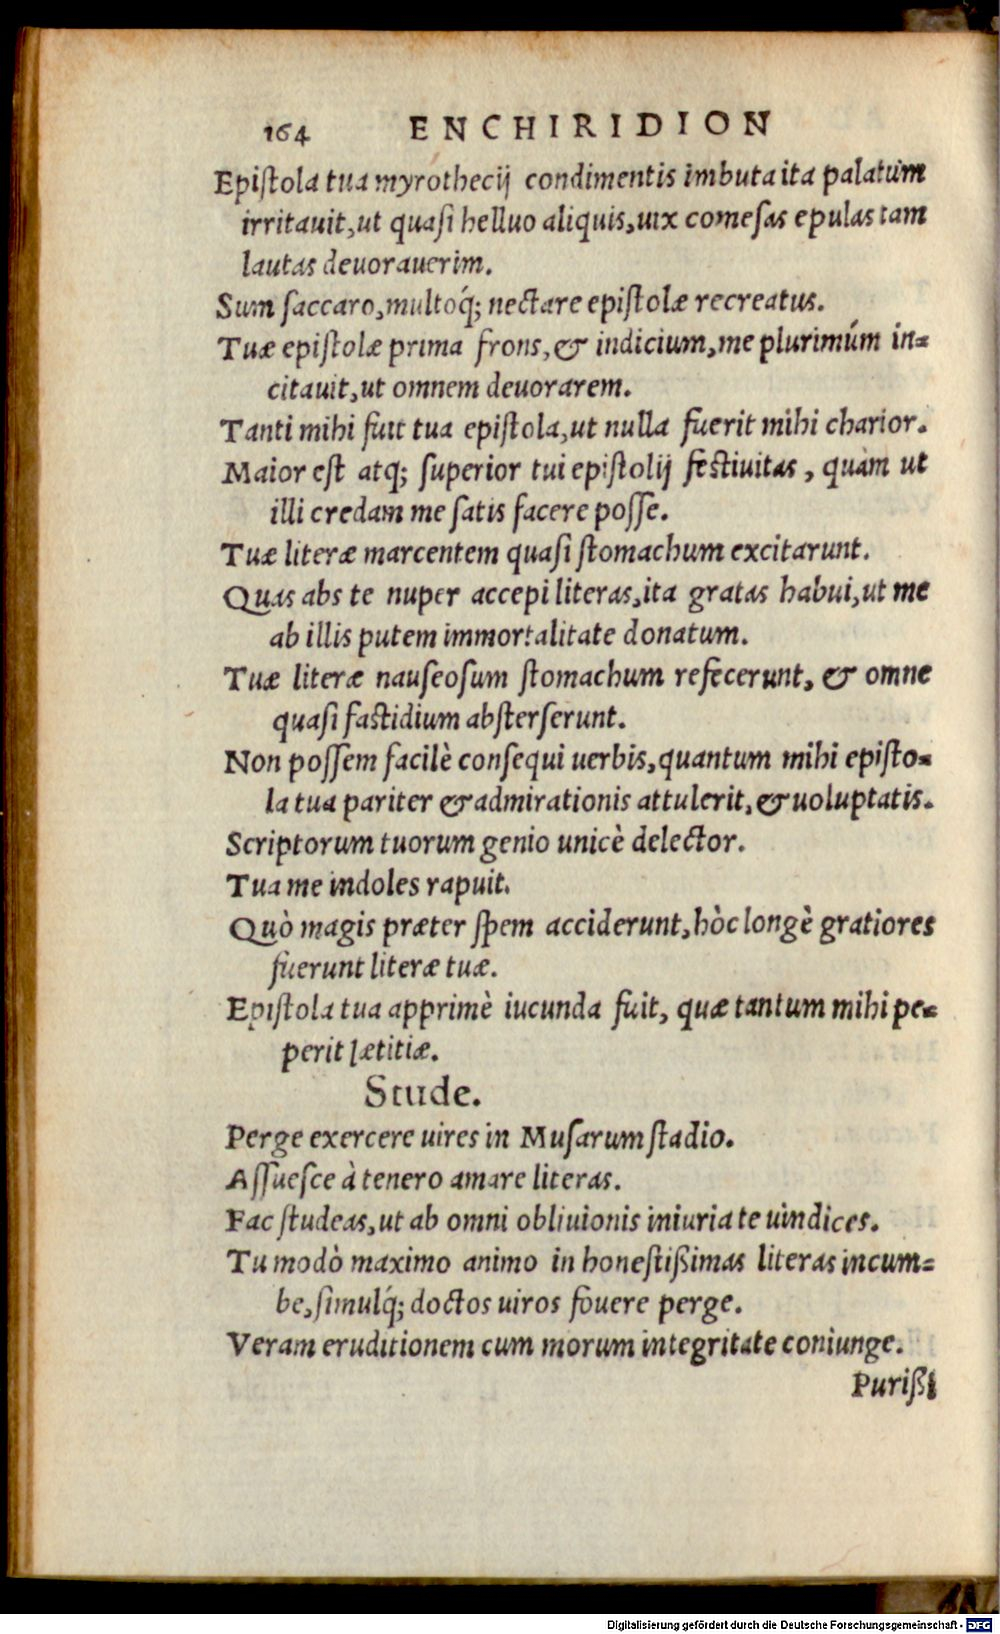 164 ENCHIRIDION
Epistola tua myrothecij condimentis imbuta ita palatum
irritauit, ut quasi helluo aliquis, uix comesas epulas tam
lautas deuorauerim.
Sum saccaro, multoq́; nectare epistolæ recreatus.
Tuæ epistolæ prima frons, & indicium, me plurimúm in-
citauit, ut omnem deuorarem.
Tanti mihi fuit tua epistola, ut nulla fuerit mihi charior.
Maior est atq; superior tui epistolij festiuitas, quàm ut
illi credam me satis facere posse.
Tuæ literæ marcentem quasi stomachum excitarunt.
Quas abs te nuper accepi literas, ita gratas habui, ut me
ab illis putem immortalitate donatum.
Tuæ literæ nauseosum stomachum refecerunt, & omne
quasi fastidium absterserunt.
Non possem facilè consequi uerbis, quantum mihi episto-
la tua pariter & admirationis attulerit, & uoluptatis.
Scriptorum tuorum genio unicè delector.
Tua me indoles rapuit.
Quò magis præter spem acciderunt, hòc longè gratiores
fuerunt literæ tuæ.
Epistola tua apprimè iucunda fuit, quæ tantum mihi pe-
perit lætitiæ.
Stude.
Perge exercere uires in Musarum stadio.
Assuesce à tenero amare literas.
Fac studeas, ut ab omni obliuionis iniuria te uindices.
Tu modò maximo animo in honestißimas literas incum-
be, simulq́; doctos uiros fouere perge.
Veram eruditionem cum morum integritate coniunge.
Purißi
Digitalisierung gefördert durch die Deutsche Forschungsgemeinschaft - DFG